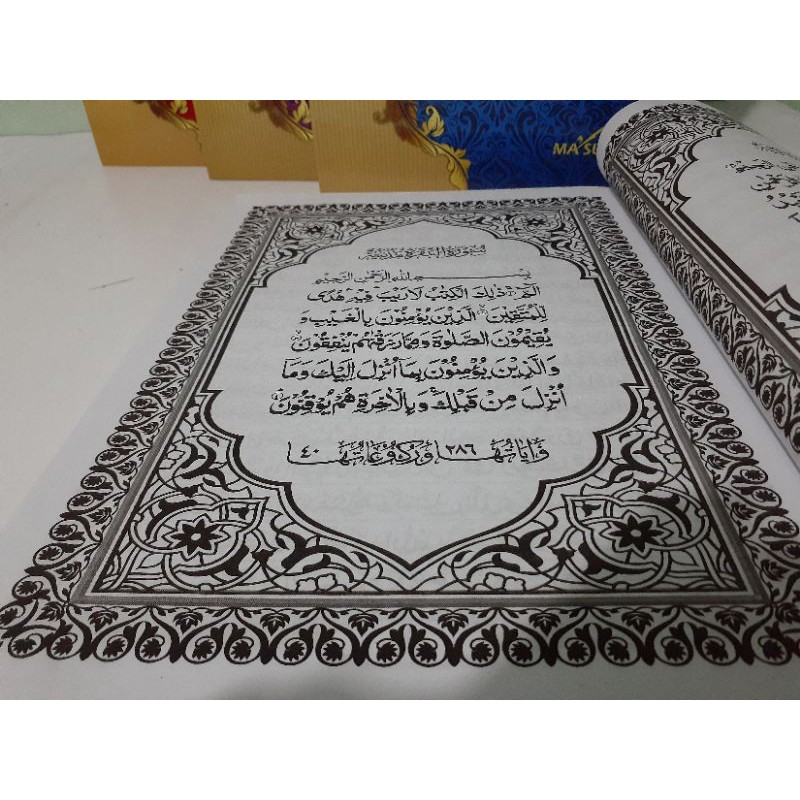 سورة البقرة مدنية
بسم الله الرحمن الرحيم
الم ذلك الكتب لا ريب فيه هدى
للمتقين الذين يؤمنون بالغيب و
يقيمون الصلوة ومما رزقنهم ينفقون
والذين يؤمنون بما أنزل إليك وما
أنزل من قبلك وبالآخرة هم يوقنون
وآياتها ٢٨٦ وركوعاتها ٤٠